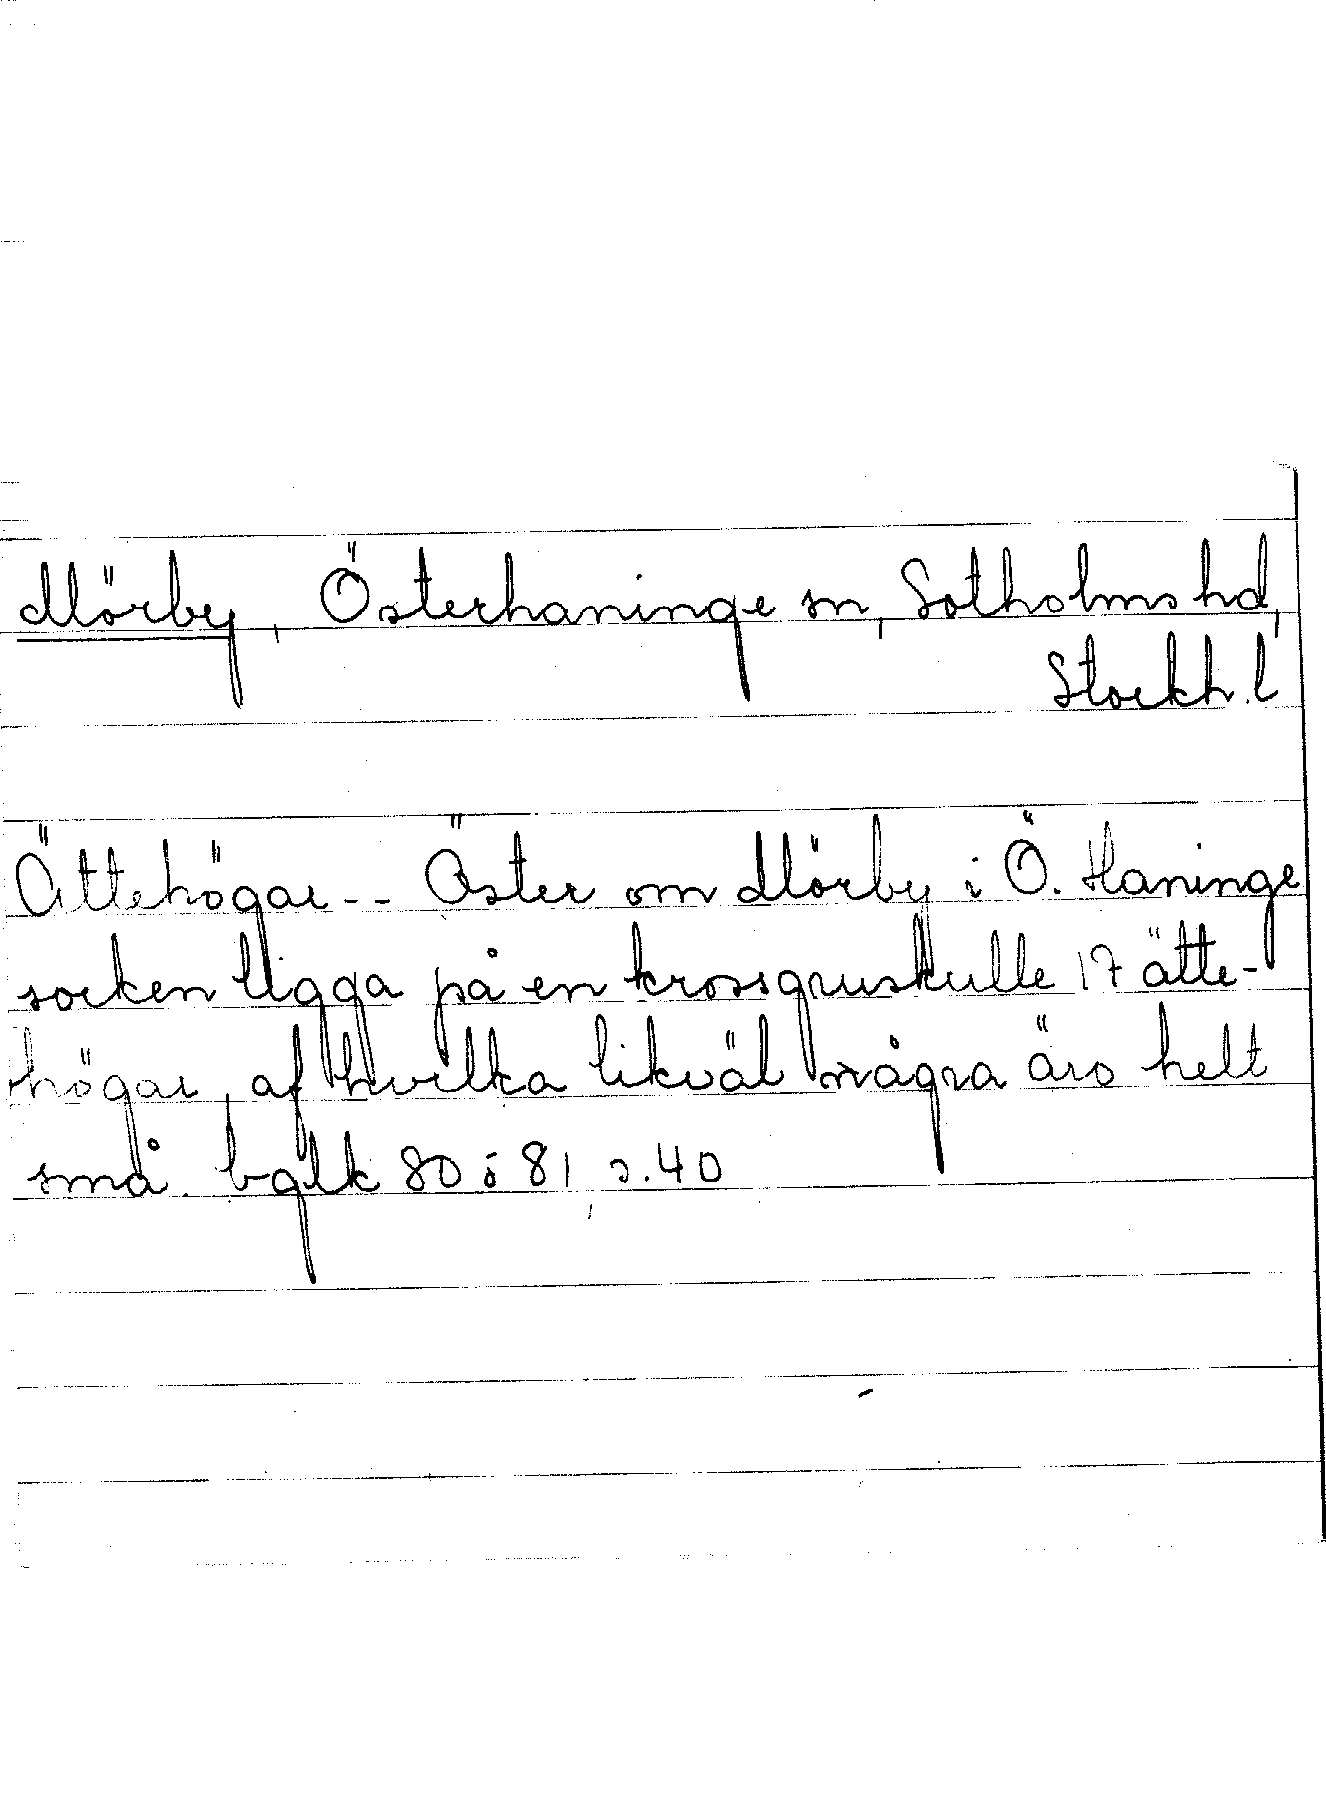 Mörby, Österhaninge sn, Sotholms hd,
Stockh. l
Ättehögar -- Öster om Mörby i Ö. Haninge
socken ligga på en krossgruskulle 17 ätte-
högar, af hvilka likväl några äro helt
små. bglk 80 o 81 s. 40